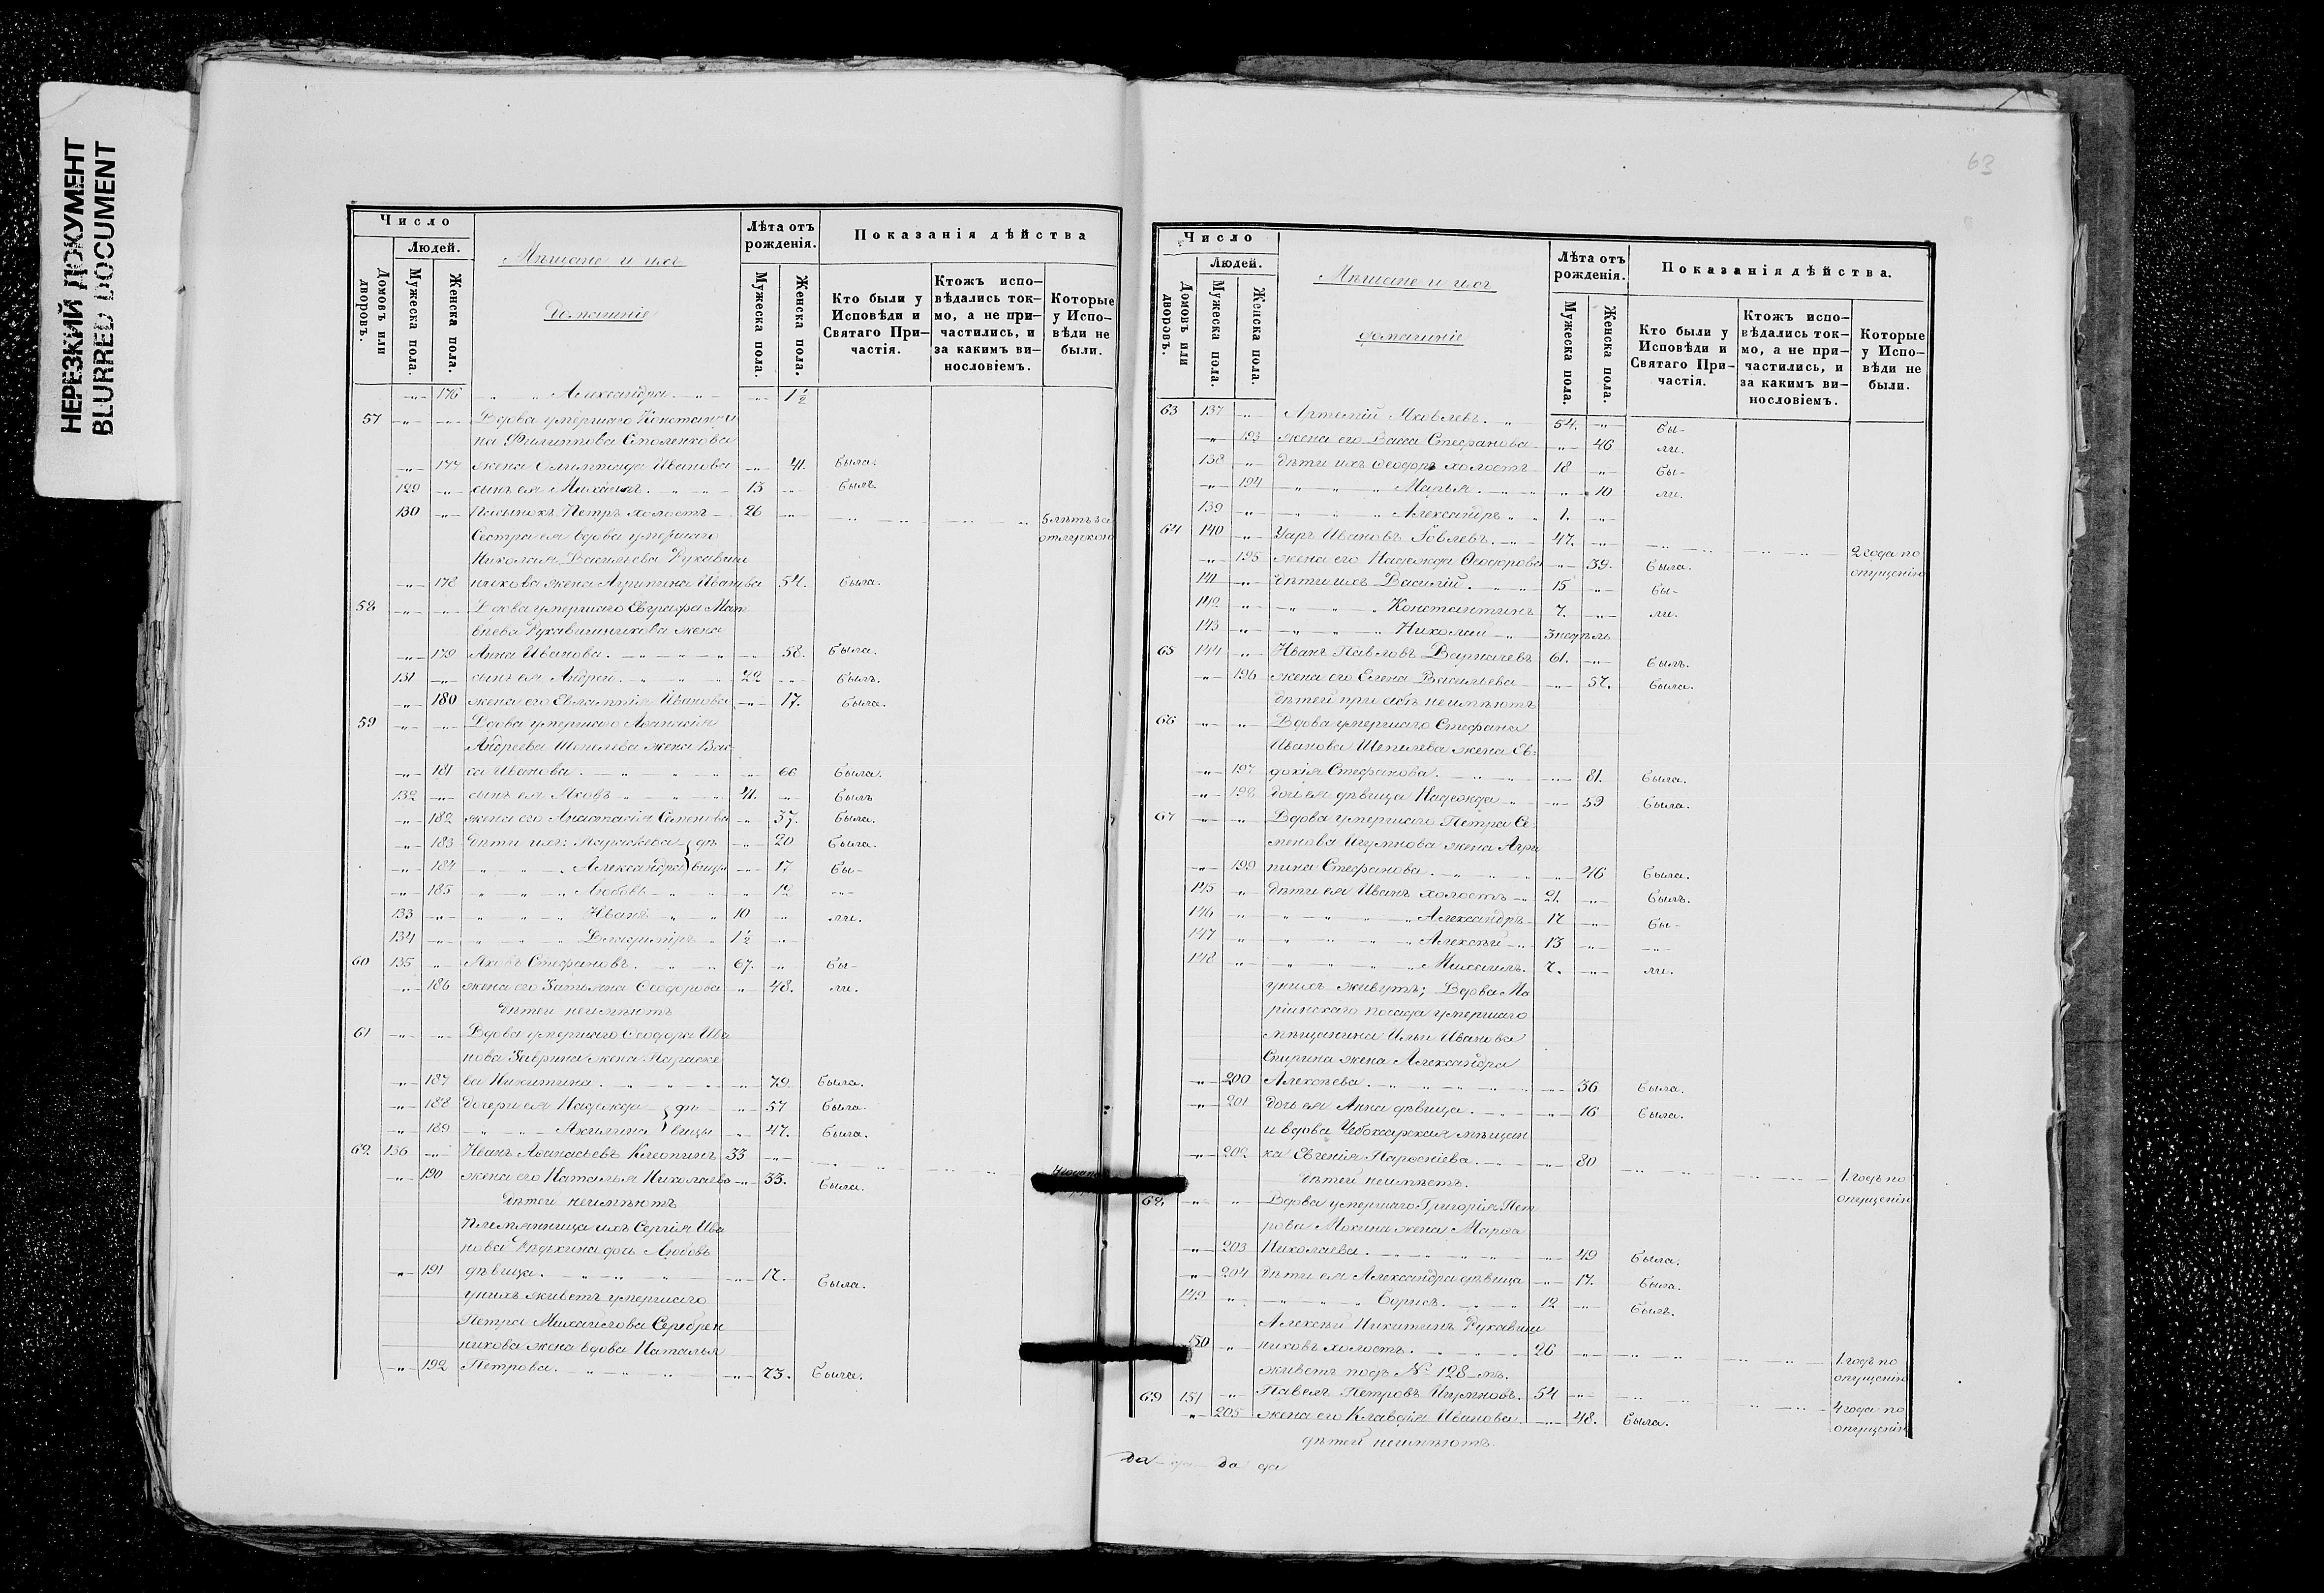 НЕРЕЗКИЙ ДОКУМЕНТ
BLURRED DOCUMENT
Число
Людей.
Домовъ или дворовъ.
Мужеска пола.
Женска пола.
Мѣщане и ихъ
домашніе
Лѣта отъ рожденія.
Мужеска пола.
Женска пола.
Показанія дѣйства
Кто были у Исповѣди и Святаго Причастія.
Ктожъ исповѣдались токмо, а не причастились, и за какимъ винословіемъ.
Которые у Исповѣди не были.
176 Александра 1½
57 Вдова умершаго Константи
на Филиппова Столенкова
177 жена Олимпіада Иванова 41. была.
129 сынъ ея Михаилъ 13 былъ.
130 Пасынокъ Петръ холостъ 26 5 лѣтъ за отлучкою
Сестра ея вдова умершаго
Николая Васильева Рукавиш
178 никова жена Агрипина Иванова 54. была.
58 Вдова умершаго Евграфа Мат
вѣева Рукавишникова жена
179 Анна Иванова. 58. была.
131 сынъ ея Андрей. 22 былъ.
180 жена его Евлампія Иванова 17. была.
59 Вдова умершаго Афанасія
Андреева Шепилева жена Вас
181 са Иванова. 66 была.
132 сынъ ея Яковъ 41. былъ
182 жена его Анастасія Семенова 37. была.
183 дѣти ихъ: Параскева дѣ 20 была.
184 Александра вицы 17 бы-
185 Любовь 12
133 Иванъ 10 ли.
134 Владиміръ 1½
60 135 Яковъ Стефановъ. 67. бы-
186 жена его Татьяна Ѳеодорова 48. ли.
дѣтей неимѣютъ
61 Вдова умершаго Ѳеодора Ива
нова жена Параске
187 ва Никитина. 79 была.
188 дочери ея Надежда дѣ 57 была.
189 Акилина вицы 47. была.
62 136 Иванъ Афанасьевъ 33
190 жена его Наталья Николаева 33. была.
дѣтей неимѣютъ
Племянница ихъ Сергія Ива
нова дочь Любовь
191 дѣвица. 17. была.
у нихъ живетъ умершаго
Петра Михаилова Серебрен
никова жена вдова Наталья
192 Петрова. 73. была.
63
Число
Людей.
Домовъ или дворовъ.
Мужеска пола.
Женска пола.
Мѣщане и ихъ
домашніе
Лѣта отъ рожденія.
Мужеска пола.
Женска пола.
Показанія дѣйства.
Кто были у Исповѣди и Святаго Причастія.
Ктожъ исповѣдались токмо, а не причастились, и за какимъ винословіемъ.
Которые у Исповѣди не были.
63 137 Артемій Яковлевъ. 54. бы-
193 жена его Васса Стефанова 46 ли.
138 дѣти ихъ Ѳеодоръ холостъ 18 бы-
194 Марья 10 ли.
139 Александръ 1.
64 140 Уаръ Ивановъ 47. 2 года по опущенію
195 жена его Надежда Ѳеодорова 39. была.
141 дѣти ихъ Василій. 15 бы-
142 Константинъ 7. ли.
143 Николай 3 недѣли
65 144 Иванъ Павловъ 61. былъ.
196 жена его Елена Васильева 57. была.
дѣтей при себѣ неимѣютъ
66 Вдова умершаго Стефана
Иванова Шепилева жена Ев-
197 докія Стефанова. 81. была.
198 дочь ея дѣвица Надежда 59 была.
67 Вдова умершаго Петра Се-
менова Игумнова жена Агри
199 пина Стефанова. 46 была.
145 дѣти ея Иванъ холостъ 21. былъ.
146 Александръ 17 бы-
147 Алексѣй 13
148 Михаилъ. 7. ли.
у нихъ живутъ; Вдова Ма
ріинскаго посада умершаго
мѣщанина Ильи Иванова
Спирина жена Александра
200 Алексѣева. 36 была.
201 дочь ея Анна дѣвица. 16 была.
и вдова Чебоксарская мѣщан
202 ка Евгенія Парфеніева. 80 1. годъ по опущенію
дѣтей неимѣетъ.
68 Вдова умершаго Григорія Пет
рова Мокина жена Марфа
203 Николаева. 49 была.
204 дѣти ея Александра дѣвица 17. была.
149 Борисъ. 12 былъ.
Алексѣй Никитинъ Рукавиш
150 никовъ холостъ. 26 1. годъ по опущенію
живетъ подъ № 128-мъ.
69 151 Павелъ Петровъ Игумновъ. 54 4 года по опущенію
205 жена его Клавдія Иванова. 48. была.
дѣтей неимѣютъ.